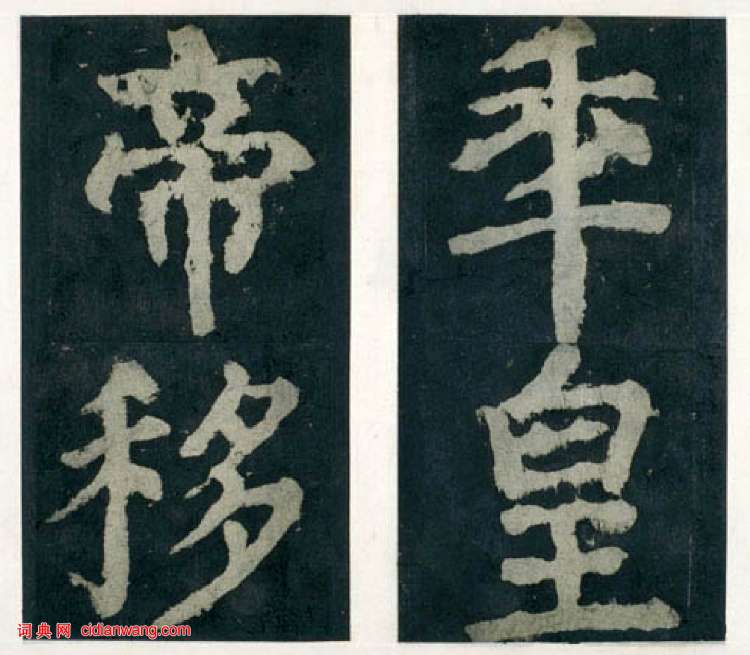 年皇
帝移
词典网 cidianwang.com